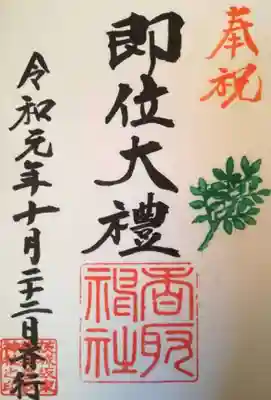 奉祝
即位大禮
香取神社
令和元年十月二十二日斎行